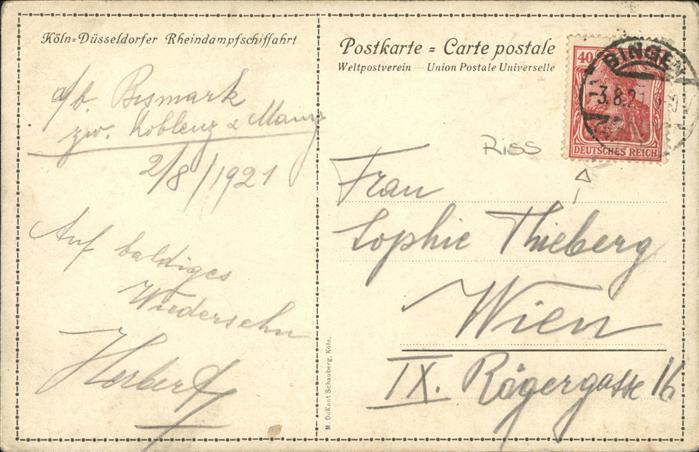 Köln-Düsseldorfer Rheindampfschiffahrt
d/b. Bismark
zw. Koblenz & Mainz
2/8/1921
Auf baldiges
Wiedersehn
Herbert
Postkarte = Carte postale
Weltpostverein — Union Postale Universelle
40
BINGEN
3.8.2
DEUTSCHES REICH
RISS
Frau
Sophie Thieberg
Wien
IX. Rögergasse 16
M. DuMont Schauberg, Köln.